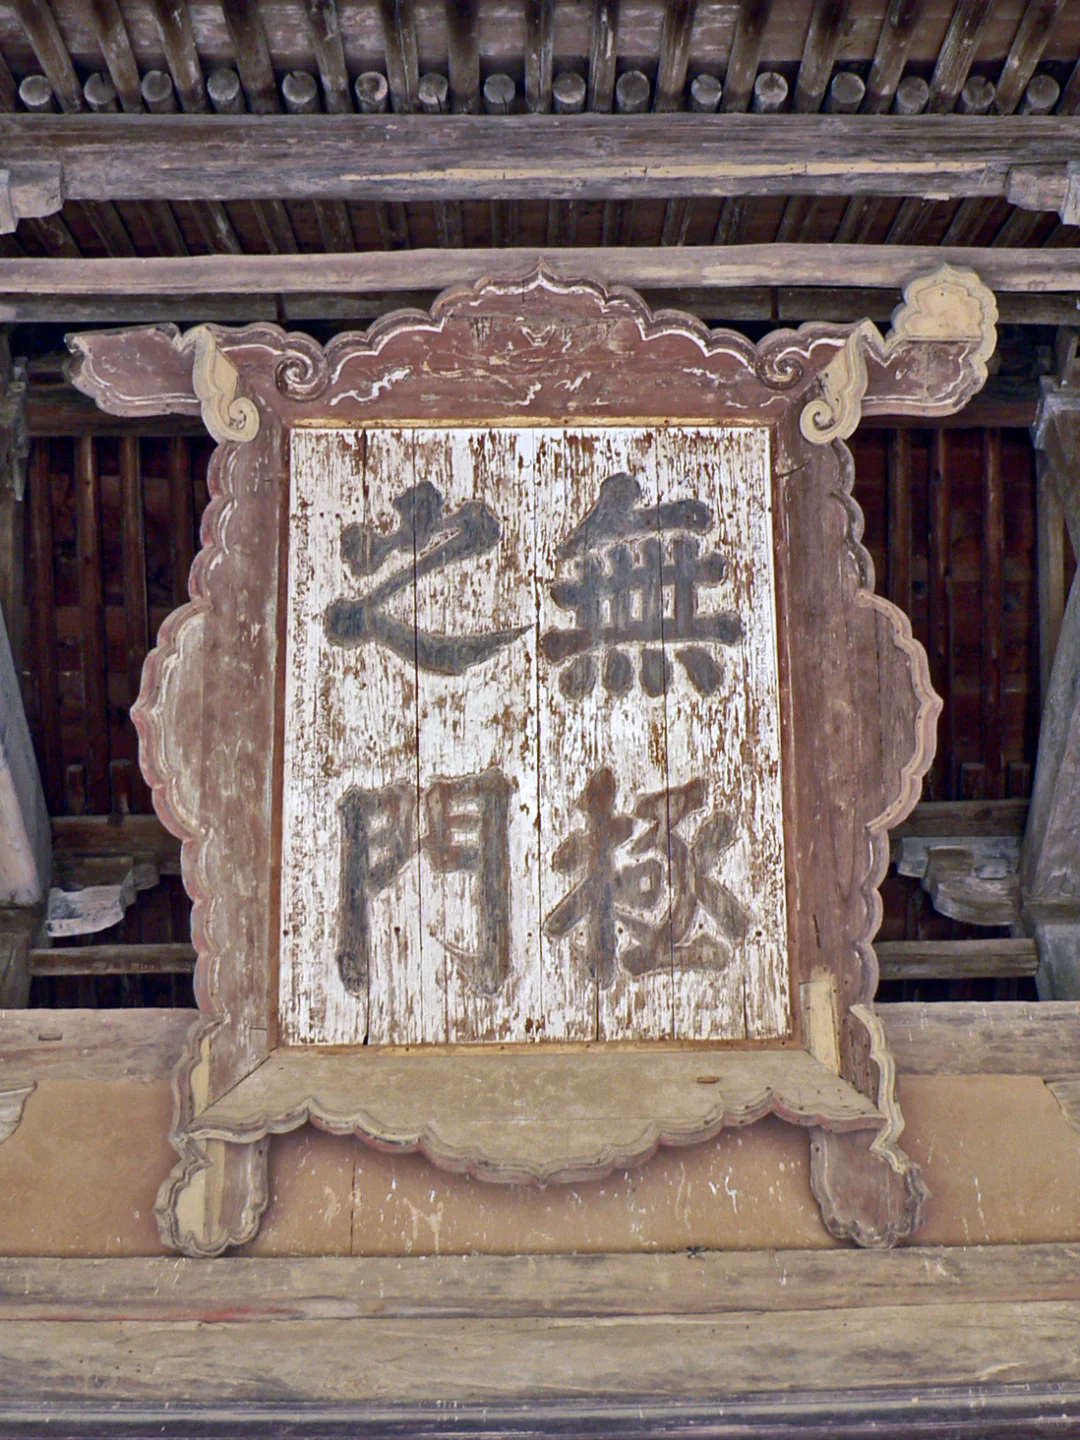 無極
之門